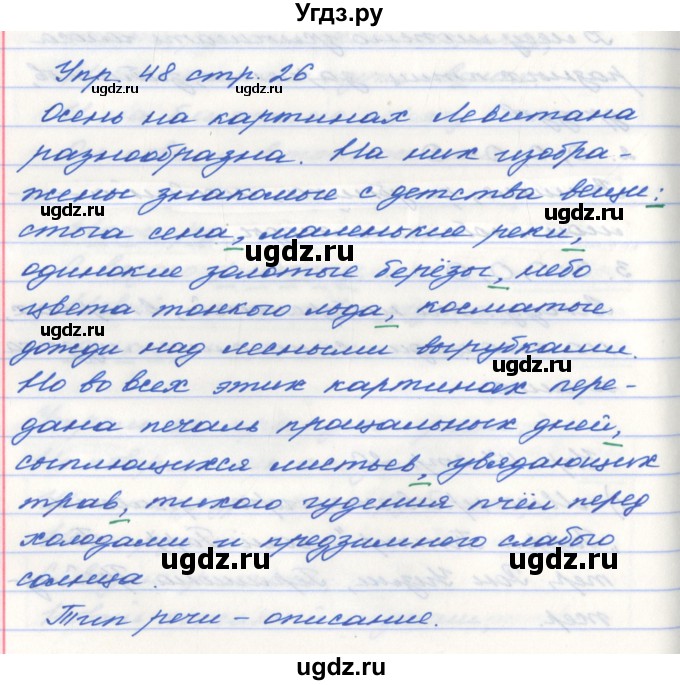 Угдз.ру
Упр 48 стр. 26
ugdz.ru ugdz.ru
Осень на картинах Левитана
разнообразна. На них изобра-
ugdz.ru
жены знакомые с детства вещи:
ugdz.ru ugdz.ru
стога сена, маленькие реки,
ugdz.ru
одинокие золотые берёзы, небо
цвета тонкого льда, косматые
ugdz.ru
дожди над лесными вырубками.
Но во всех этих картинах пере-
дана печаль прощальных дней,
сыплющихся листьев, увядающих
трав, тихого гудения пчёл перед
холодами и предзимнего слабого
ugdz.ru ugdz.ru
солнца.
Тип речи – описание.
ugdz.ru